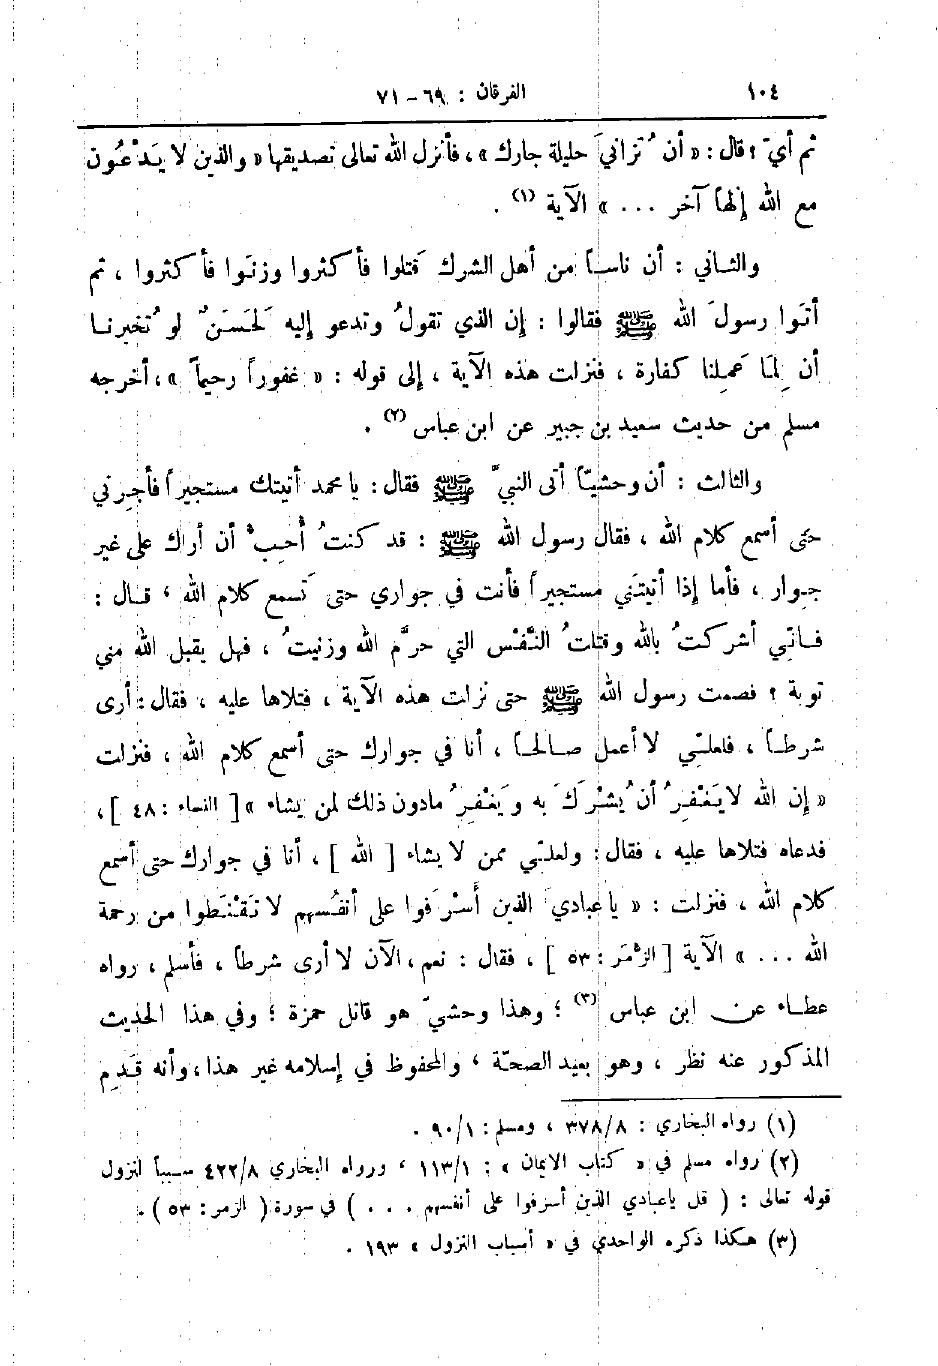 ١٠٤ الفرقان : ٦٩ - ٧١
ثم أيّ ؟ قال : « أن تُزانيَ حليلة جارك » ، فأنزل الله تعالى تصديقها « والذين لا يَدْعُون
مع الله إلهاً آخر ... » الآية (١) .
والثاني : أن ناساً من أهل الشرك قَتلوا فأكثروا وزنَوا فأكثروا ، ثم
أتَوا رسولَ الله ﷺ فقالوا : إن الذي تقولُ وتدعو إليه لَحَسَنٌ لو تُخبرنا
أن لِمَا عَمِلنا كفارة ، فنزلت هذه الآية ، إلى قوله : « غفوراً رحيماً » ، أخرجه
مسلم من حديث سعيد بن جبير عن ابن عباس (٢) .
والثالث : أن وحشيّاً أتى النبيَّ ﷺ فقال : يا محمد أتيتك مستجيراً فأجِرني
حتى أسمع كلام الله ، فقال رسول الله ﷺ : قد كنتُ أُحِبّ أن أراك على غير
جوار ، فأما إذا أتيتَني مستجيراً فأنت في جواري حتى تَسمع كلام الله ، قال :
فانّي أشركتُ بالله وقتلتُ النَّفْس التي حرَّم الله وزنيتُ ، فهل يقبل الله مني
توبة ؟ فصمت رسول الله ﷺ حتى نزلت هذه الآية ، فتلاها عليه ، فقال : أرى
شرطاً ، فلعلّي لا أعمل صالحاً ، أنا في جوارك حتى أسمع كلام الله ، فنزلت
« إن الله لا يَغْفِرُ أن يُشْرَكَ به ويَغْفِرُ مادون ذلك لمن يشاء » [ النساء : ٤٨ ] ،
فدعاه فتلاها عليه ، فقال : ولعلّي ممن لا يشاء [ الله ] ، أنا في جوارك حتى أسمع
كلام الله ، فنزلت : « يا عبادي الذين أَسْرَفوا على أنفُسهم لا تَقْنَطوا من رحمة
الله ... » الآية [ الزُّمَر : ٥٣ ] ، فقال : نعم ، الآن لا أرى شرطاً ، فأسلم ، رواه
عطاء عن ابن عباس (٣) ؛ وهذا وحشيّ هو قاتل حمزة ؛ وفي هذا الحديث
المذكور عنه نظر ، وهو بعيد الصحّة ، والمحفوظ في إسلامه غير هذا ، وأنه قَدِم
(١) رواه البخاري : ٣٧٨/٨ ، ومسلم : ٩٠/١ .
(٢) رواه مسلم في « كتاب الايمان » : ١١٣/١ ، ورواه البخاري ٤٢٢/٨ سبباً لنزول
قوله تعالى : ( قل ياعبادي الذين أسرفوا على أنفسهم ... ) في سورة ( الزمر : ٥٣ ) .
(٣) هكذا ذكره الواحدي في « أسباب النزول » ١٩٣ .